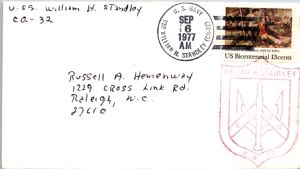 U.S.S. William H. Standley
CG-32
U.S. NAVY
SEP
6
1977
AM
USS WILLIAM H. STANDLEY (CG-32)
US Bicentennial 13cents
Russell A. Hemenway
1229 Cross Link Rd.
Raleigh, N.C.
27610
WILLIAM H. STANDLEY